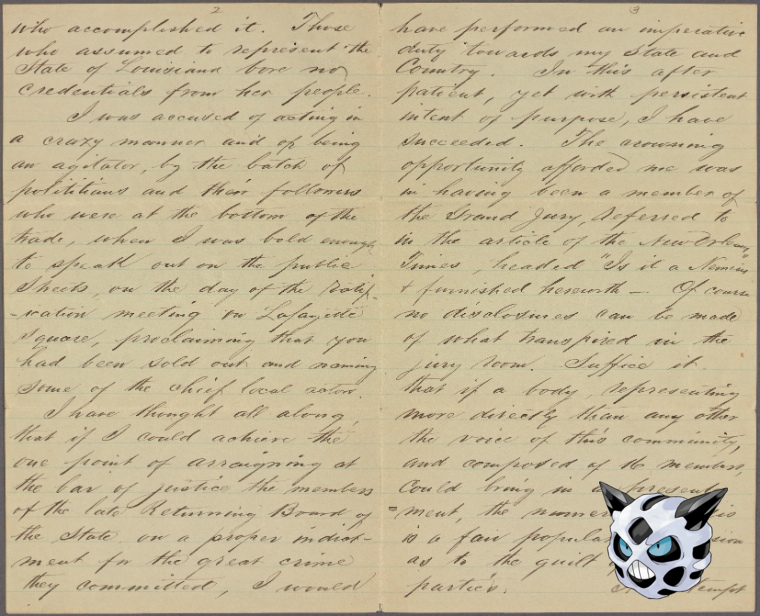 2
who accomplished it. Those
who assumed to represent the
State of Louisiana bore no
credentials from her people.
I was accused of acting in
a crazy manner and of being
an agitator, by the batch of
polititians and their followers
who were at the bottom of the
trade, when I was bold enough
to speak out on the public
Streets, on the day of the Ratif-
-ication meeting on Lafayette
Square, proclaiming that you
had been sold out and naming
some of the chief local actors.
I have thought all along,
that if I could achieve the
one point of arraigning at
the bar of justice the members
of the late Returning Board of
the State, on a proper indict-
ment for the great crime
they committed, I would
3
have performed an imperative
duty towards my State and
Country. In this after
patient, yet with persistent
intent of purpose, I have
succeeded. The crowning
opportunity afforded me was
in having been a member of
the Grand Jury, referred to
in the article of the New Orleans
Times, headed "Is it a Nemesis"
& furnished herewith—. Of course
no disclosures can be made
of what transpired in the
jury room. Suffice it
that if a body, representing
more directly than any other
the voice of this community,
and composed of 16 members,
Could bring in a present
ment, the
is a fair
as to the guilt
parties.